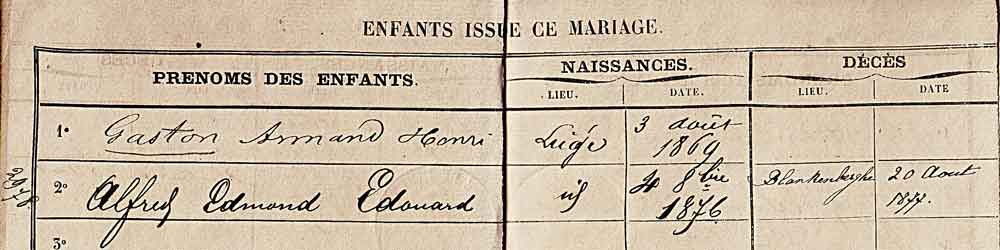 ENFANTS ISSUE CE MARIAGE.
PRENOMS DES ENFANTS.
NAISSANCES.
DÉCÈS
LIEU.
DATE.
LIEU.
DATE
1º Gaston Armand Henri Liége 3 août 1869
2º Alfred Edmond Edouard id 4 8bre 1876 Blankenberghe 20 Aout 1877.
3º